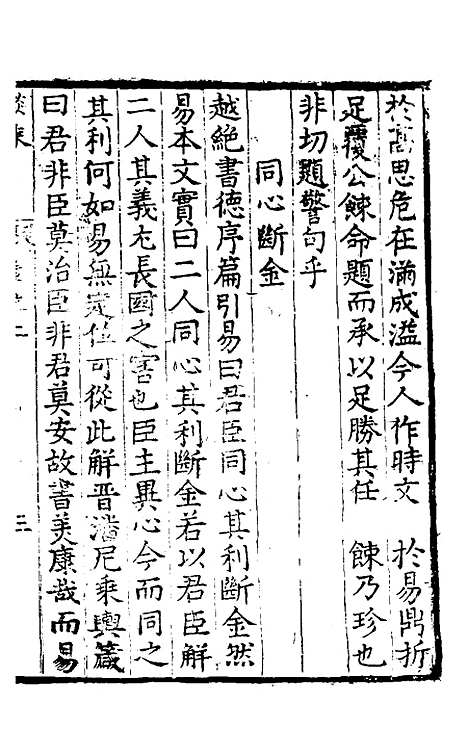 於高思危在滿成溢今人作時文　於易鼎折
足覆公餗命題而承以足勝其任　餗乃珍也
非切題警句乎
同心斷金
越絕書德序篇引易曰君臣同心其利斷金然
易本文實曰二人同心其利斷金若以君臣解
二人其義尤長國之害也臣主異心今而同之
其利何如易無定位可從此解晉潘尼乘輿箴
曰君非臣莫治臣非君莫安故書美康哉而易
三